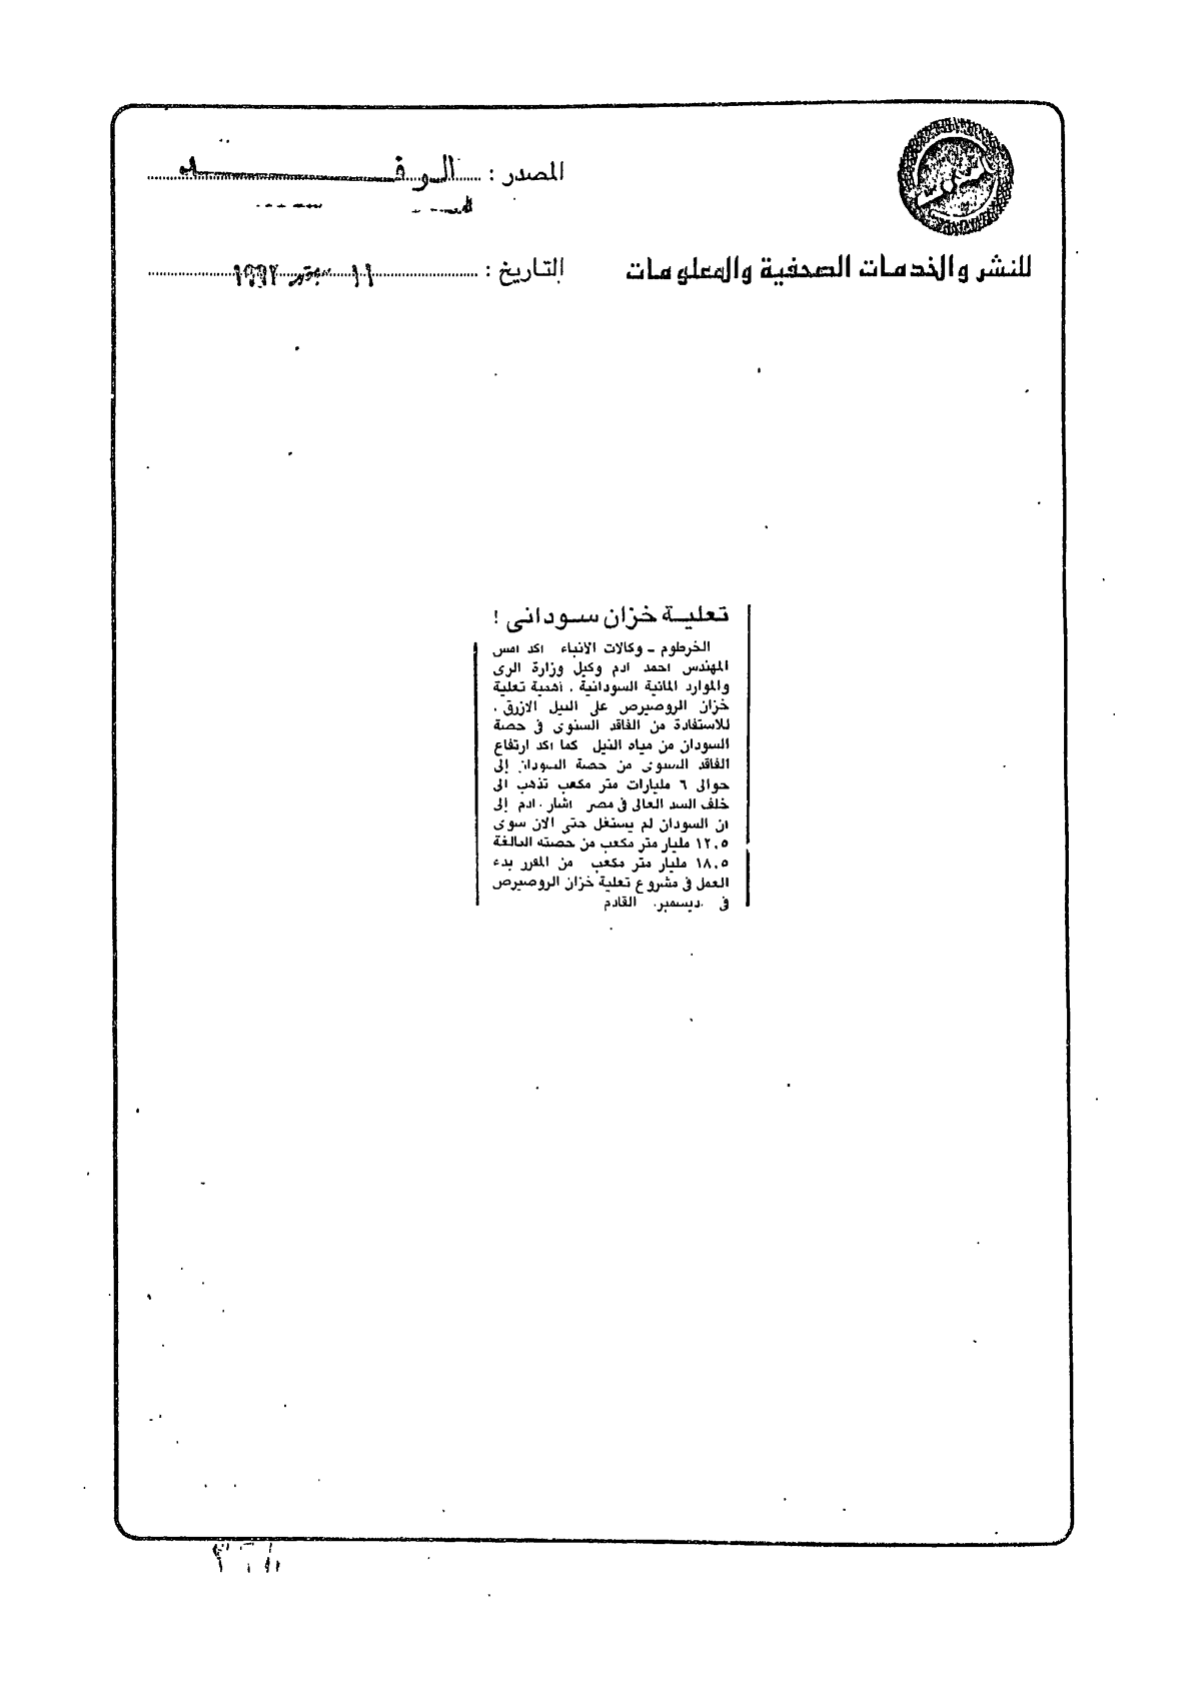 المصدر : الوفد
للنشر والخدمات الصحفية والمعلومات
التاريخ : ١١ سبتمبر ١٩٩٢
تعلية خزان سودانى !
الخرطوم - وكالات الانباء اكد امس
المهندس احمد ادم وكيل وزارة الرى
والموارد المائية السودانية . أهمية تعلية
خزان الروصيرص على النيل الازرق .
للاستفادة من الفاقد السنوى فى حصة
السودان من مياه النيل كما اكد ارتفاع
الفاقد السنوى من حصة السودان إلى
حوالى ٦ مليارات متر مكعب تذهب الى
خلف السد العالى فى مصر اشار ادم إلى
ان السودان لم يستغل حتى الان سوى
١٢,٥ مليار متر مكعب من حصته البالغة
١٨,٥ مليار متر مكعب من المقرر بدء
العمل فى مشروع تعلية خزان الروصيرص
فى ديسمبر القادم